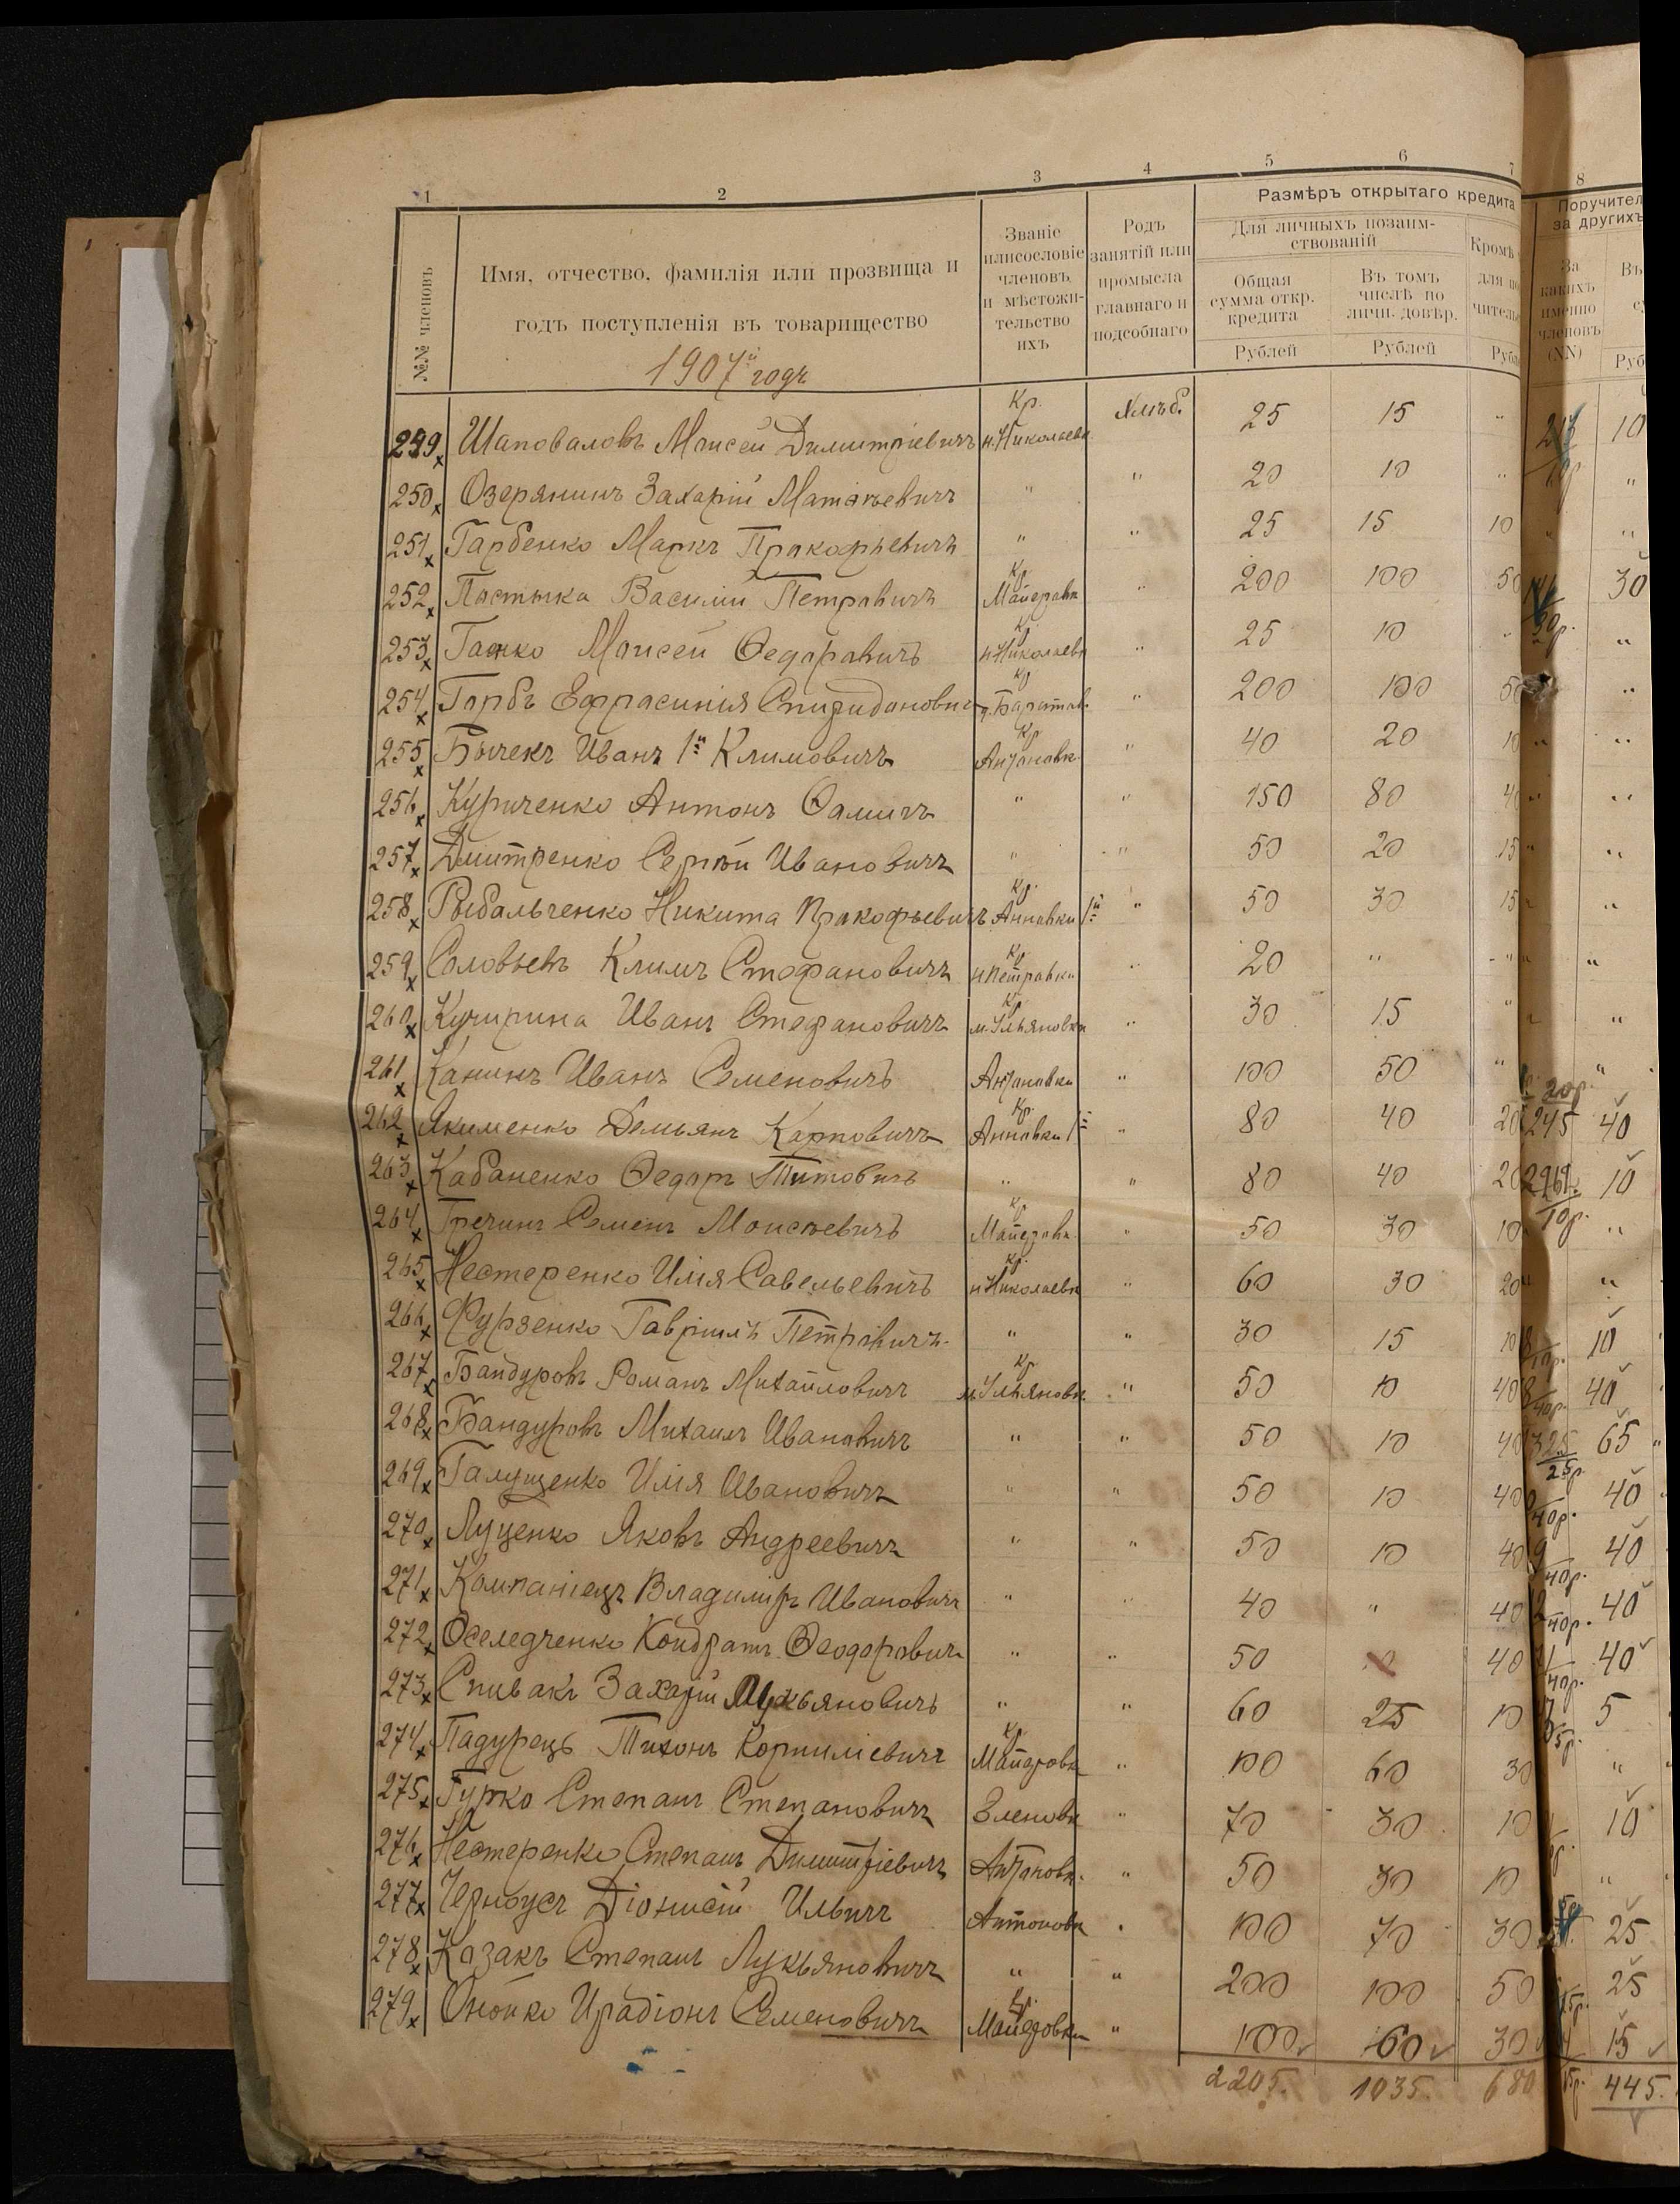 1 2 3 4 5 6 7 8
№№ членовъ
Имя, отчество, фамилія или прозвища и
годъ поступленія въ товарищество
1907й годъ
Званіе
илисословіе
членовъ
и мѣстожи-
тельство
ихъ
Родъ
занятій или
промысла
главнаго и
подсобнаго
Размѣръ открытаго кредита
Для личныхъ позаим-
ствованій
Общая
сумма откр.
кредита
Рублей
Въ томъ
числѣ по
личн. довѣр.
Рублей
Кромѣ
для по
чительс
Рубл
Поручител
за другихъ
За
какихъ
именно
членовъ
(NN)
Въ
су
Руб
249 Шаповаловъ Моисей Димитріевичъ Кр. н.Николаевк Хлѣб. 25 15 " 10
250 Озерянинъ Захарій Матвѣевичъ " " 20 10 " "
251 Гарбенко Маркъ Пракофьевичъ " " 25 15 10 " "
252 Пастыка Василій Петравичъ Кр. Майеравк " 200 100 50 30
253 Моисей Ѳедаравичъ Кр. н.Николаевк " 25 10 " "
254 Гарбъ Ефрасинія Спиридановна Кр. д.Баратав. " 200 100 50 "
255 Бычекъ Иванъ 1й Климовичъ Кр. Антановк " 40 20 10 " "
256 Куриченко Антонъ Ѳамичъ " " 150 80 40 " "
257 Дмитренко Сергѣй Ивановичъ " " 50 20 15 " "
258 Рыбальченко Никита Пракофьевичъ Кр. Анновки 1й " 50 30 15 " "
259 Соловьевъ Климъ Стефановичъ Кр. н.Петравки " 20 " " " "
260 Иванъ Стефановичъ Кр. м.Ульяновки " 30 15 " " "
261 Канинъ Иванъ Семеновичъ Антановки " 100 50 " "
262 Якименко Демьянъ Карповичъ Кр. Анновки 1й " 80 40 20 20р. 245 40
263 Кабаненко Ѳедаръ Титовичъ " " 80 40 20 10
264 Гречинъ Семенъ Моисѣевичъ Кр. Майеравк " 50 30 10 10р. "
265 Нестеренко Илія Савельевичъ Кр. н.Николаевк " 60 30 20 " "
266 Фурзенко Гавріилъ Петравичъ " " 30 15 10 10
267 Бандуровъ Романъ Михайловичъ Кр. м.Ульяновк " 50 10 40 40р. 40
268 Бандуровъ Михаилъ Ивановичъ " " 50 10 40 325 25р. 65
269 Галущенко Илія Ивановичъ " " 50 10 40 40р. 40
270 Луценко Яковъ Андреевичъ " " 50 10 40 40р. 40
271 Кампаніецъ Владиміръ Ивановичъ " " 40 " 40 40р. 40
272 Оселедченко Кондратъ Ѳеодоровичъ " " 50 40 40р. 40
273 Спивакъ Захарій Лукьяновичъ " " 60 25 10 5р. 5
274 Падурецъ Тихонъ Корниліевичъ Кр. Майеровк " 100 60 30 "
275 Гурко Степанъ Степановичъ Еленовк " 70 30 10 10
276 Нестеренко Степанъ Димитріевичъ Антановк. " 50 30 10 "
277 Черноусъ Діонисій Ильичъ Антоновк " 100 70 30 25
278 Казакъ Степанъ Лукьяновичъ " " 200 100 50 25
279 Онойко Ирадіонъ Семеновичъ Кр. Майеровки " 100 60 30 15
2205. 1035. 680 445.